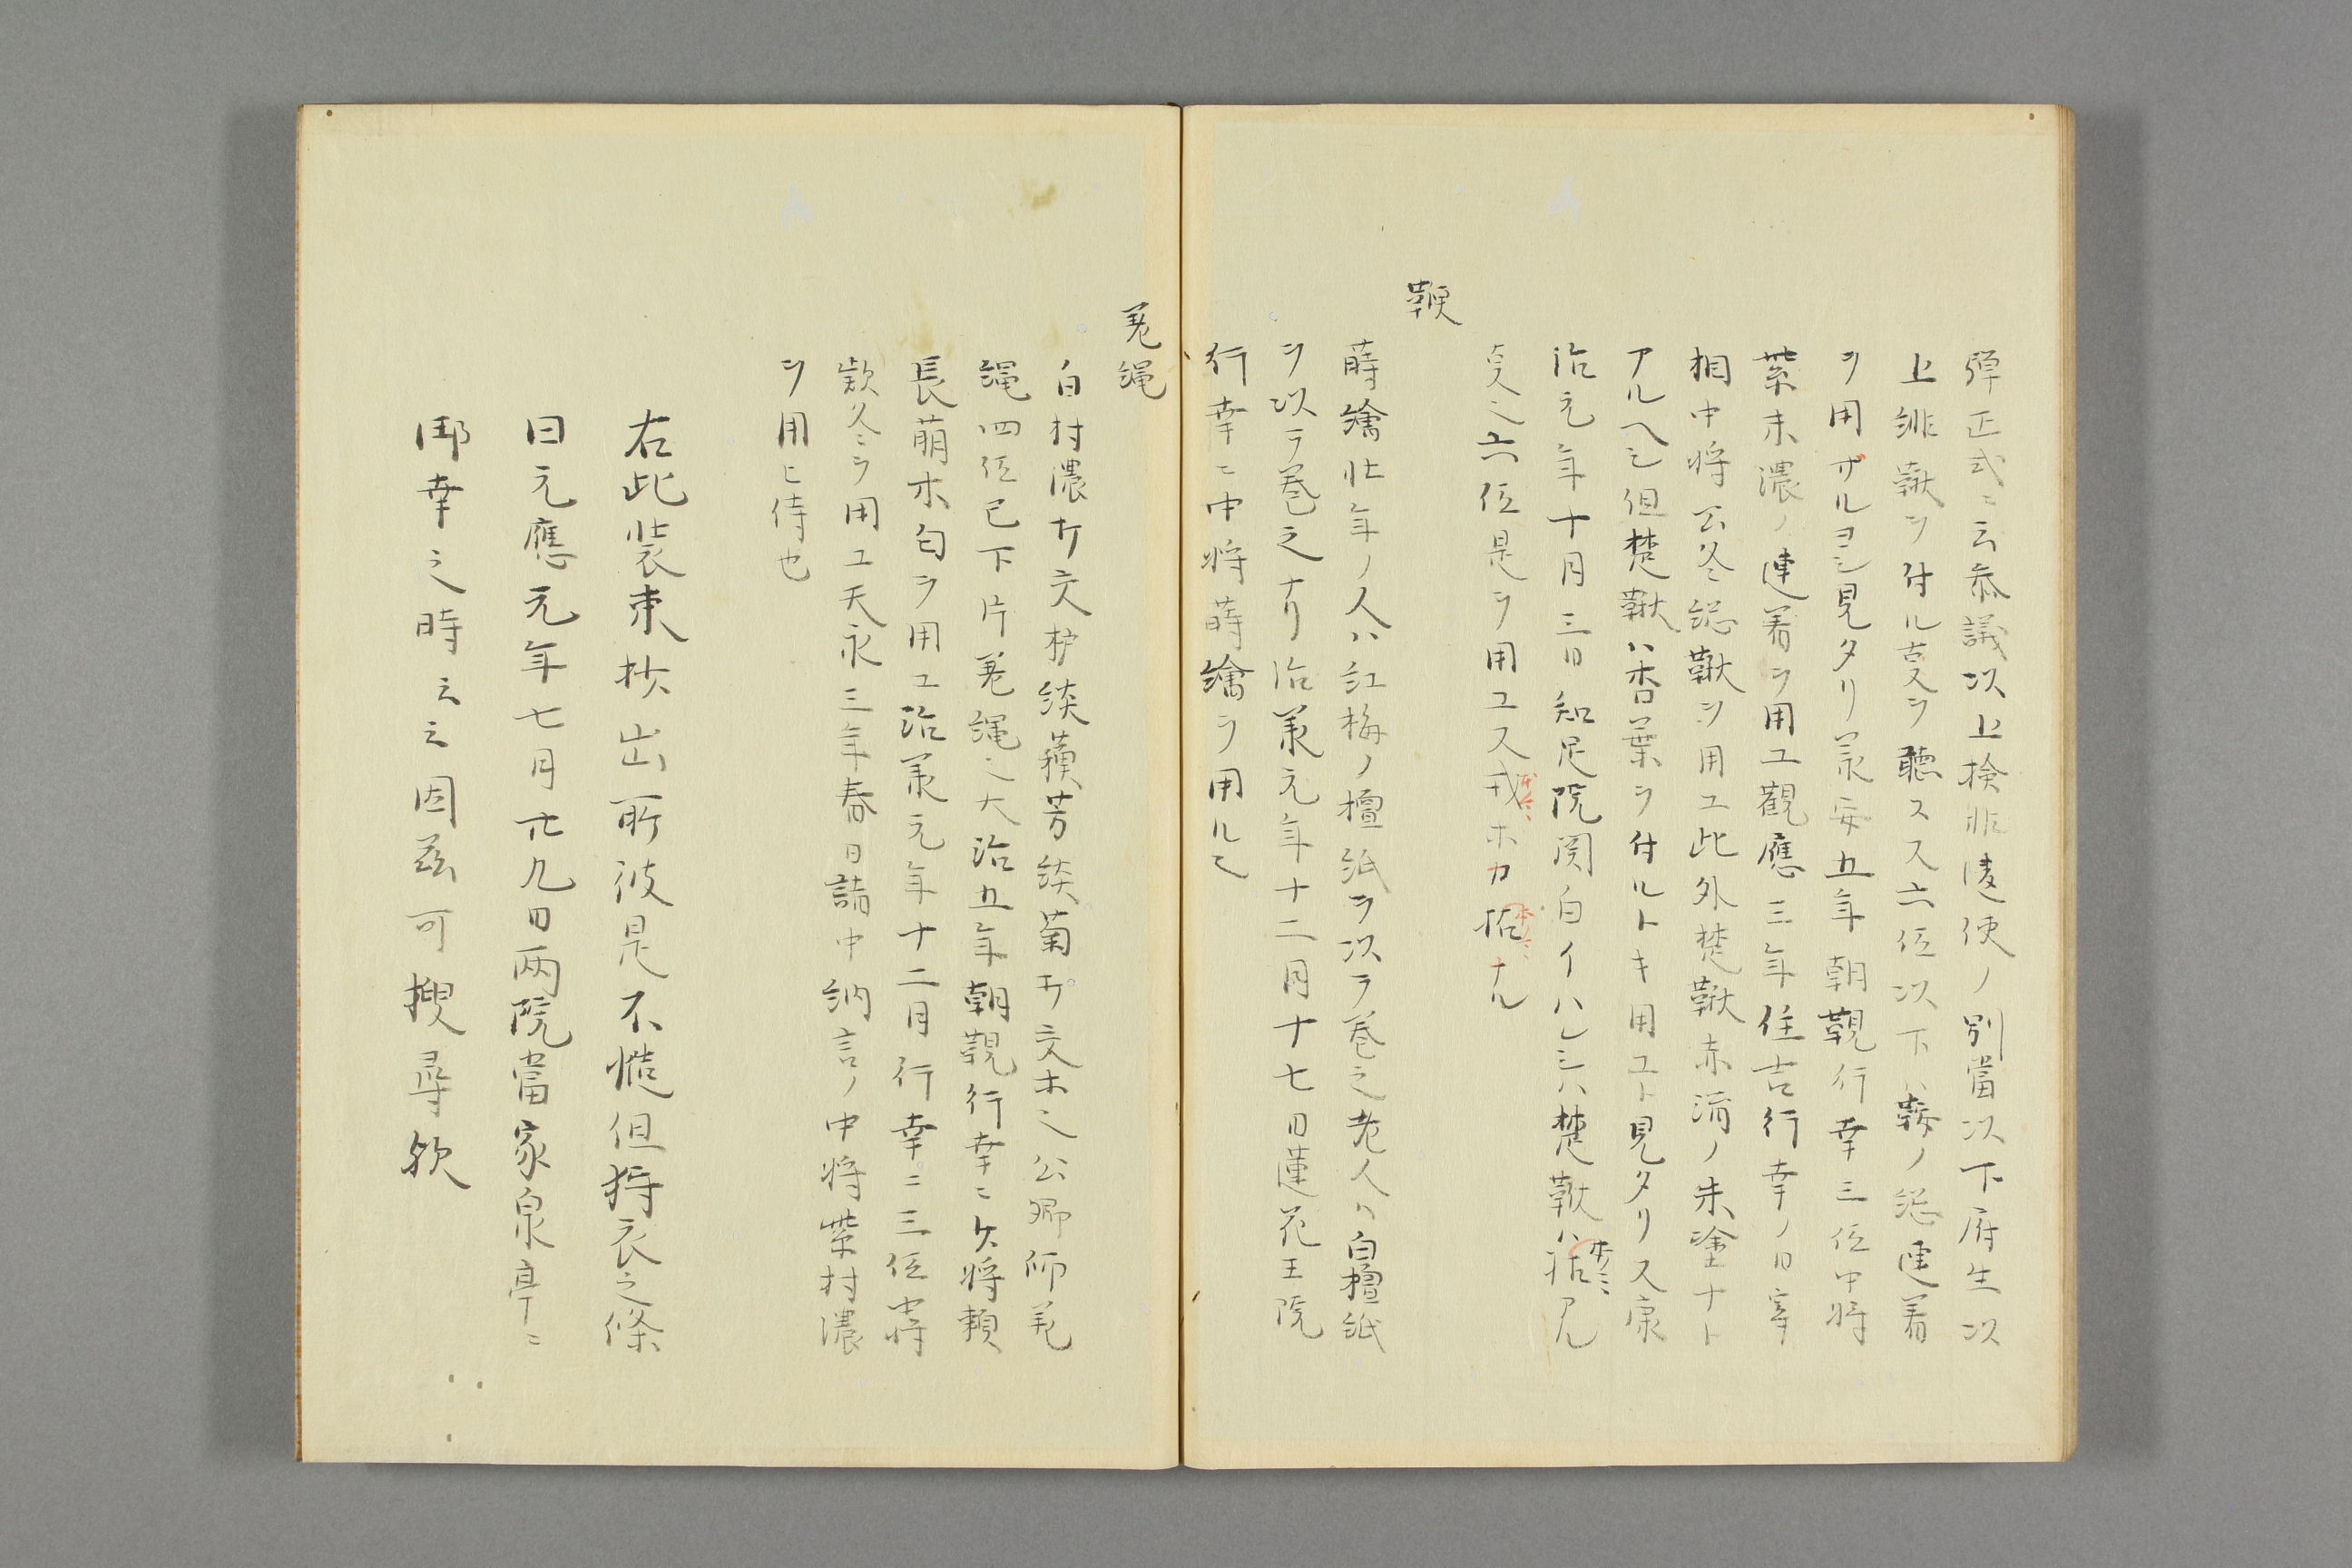 弾正式ニ云参議以上検非違使ノ別當以下府生以
上緋鞦ヲ付ル支ヲ聴ス六位以下ハ鞍ノ総連着
ヲ用ザルヨシ見タリ承安五年朝覲行幸三位中将
紫末濃ノ連着ヲ用ユ觀應三年住吉行幸ノ日宰
相中将公冬総鞦ヲ用ユ此外楚鞦赤滴ノ朱塗ナト
アルヘシ但楚鞦ハ杏葉ヲ付ルトキ用ユト見タリ又康
治元年十月三日知足院関白イハレシハ楚鞦ハ
六位是ヲ用ユ又或ホカ
鞭
蒔繪壮年ノ人ハ紅梅ノ檀紙ヲ以テ巻之老人ハ白檀紙
ヲ以テ巻之ナリ治承元年十二月十七日蓮花王院
行幸ニ中将蒔繪ヲ用ル也
差縄
白村濃打交櫨綟蘓芳綟菊打交木之公卿師差
縄四位已下片差縄也大治五年朝覲行幸ニ少将頼
長萌木匂ヲ用ユ治承元年十二月行幸ニ三位中将
款冬ヲ用ユ天永三年春日詣中納言ノ中将紫村濃
ヲ用ヒ侍也
右此装束抄出所彼是不慥但狩衣之條
日元應元年七月廿九日兩院當家泉亭ニ
御幸之時云云因茲可搜尋歟